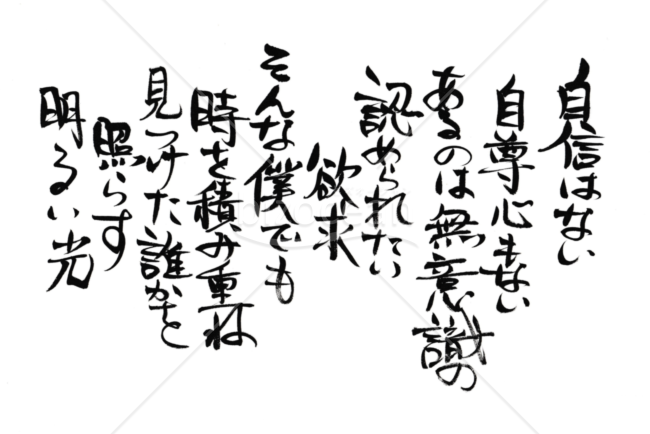 自信はない
自尊心もない
あるのは無意識の
認められたい
欲求
そんな僕でも
時を積み重ね
見つけた誰かを
照らす
明るい光